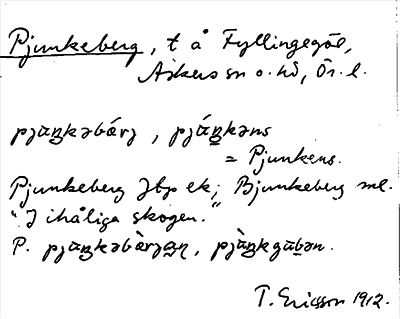 Pjunkeberg, t å Fyllingegöl,
Askers sn o. hd, Ör. l.
pjɯŋkəbárj, pjɯ́ŋkəns
= Pjunkens.
Pjunkeberg Jbp ek; Bjunkeberg ml.
"I ihåliga skogen."
P. pjɯŋkəbàrjaŋ, pjɯ̀ŋkgɯbən.
T. Ericsson 1912.